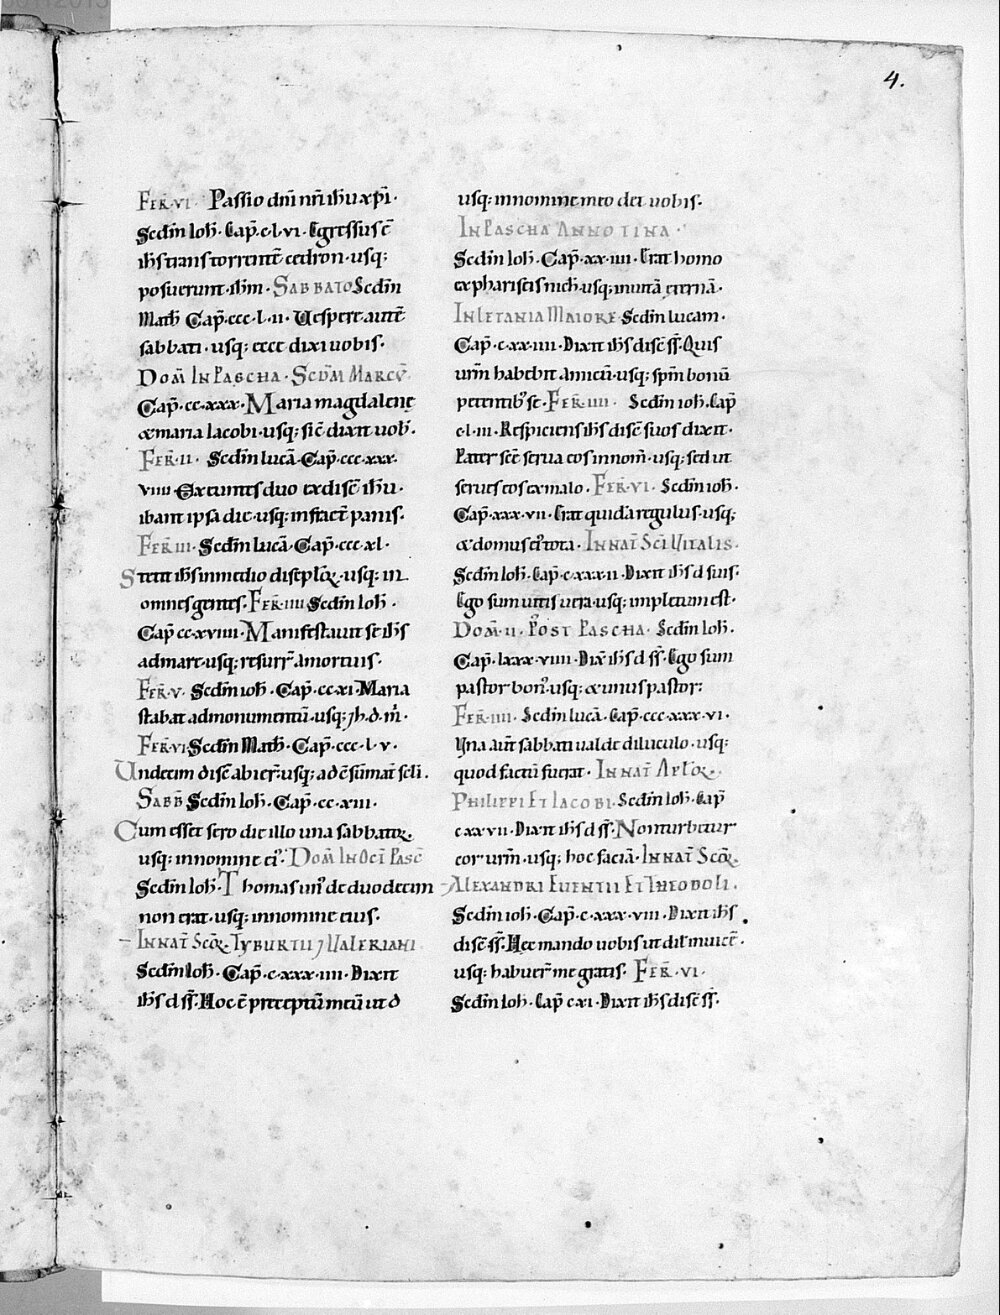 4.
FER̄·VI· Passio dn̄i nr̄i ih̄u xp̄i·
Scd̄m Ioh̄· Cap̄·c·l·vi· Egressus ē
ih̄s trans torrentē cedron·usq;
posuerunt ih̄m· SABBATO Scd̄m
Math̄ Cap̄·ccc·l·ii· Vespere autē
sabbati·usq; ecce dixi uobis·
DOM̄ IN PASCHA· SCD̄M MARCV̄·
Cap̄·cc·xxx· Maria magdalenę
& maria Iacobi·usq; sic̄ dixit uob̄·
FER̄·II· Scd̄m lucā·Cap̄·ccc·xxx·
viiii· Exeuntes duo ex disc̄ ih̄u·
ibant ipsa die·usq; in fract̄ panis·
FER̄·III· Scd̄m lucā·Cap̄·ccc·xl·
Stetit ih̄s in medio discip̄loꝝ·usq; in
omnes gentes· FER̄·IIII Scd̄m Ioh̄·
Cap̄ cc·xviiii· Manifestauit se ih̄s
ad mare·usq; resurr̄ a mortuis·
FER̄·V· Scd̄m ioh̄· Cap̄·cc·xi· Maria
stabat ad monumentū·usq; h̄·d·m̄·
FER̄·VI· Scd̄m Math̄·Cap̄·ccc·l·v·
Undecim disc̄ abier̄·usq; ad c̄sūmat̄ sc̄li·
SABB̄ Scd̄m Ioh̄·Cap̄·cc·xiii·
Cum esset sero die illo una sabbatoꝝ·
usq; in nomine ei᾽· DOM̄ IN OCT̄ PASC̄
Scd̄m Ioh̄· Thomas un᾽ de duodecim
non erat·usq; in nomine eius·
INNAT̄ SC̄Oꝝ TYBURTII ⁊ VALERIANI
Scd̄m Ioh̄· Cap̄·c·xxx·iiii· Dixit
ih̄s d s̄s̄· Hoc ē preceptū meū ut d
usq; in nomine meo det uobis·
IN PASCHA ANNOTINA·
Scd̄m Ioh̄·Cap̄·xx·iiii·Erat homo
ex phariseis nich̄·usq; in uitā eternā·
IN LETANIA MAIORE Scd̄m lucam·
Cap̄·c·xx·iiii· Dixit ih̄s disc̄ s̄s̄ Quis
urm̄ habebit amicū·usq; sp̄m bonū
petentib᾽ se· FER̄·IIII· Scd̄m ioh̄·Cap̄
c·l·iii· Respiciens ih̄s disc̄ suos dixit·
Pater sc̄e serua eos in nom̄·usq; sed ut
serues eos ex malo· FER̄·VI· Scd̄m ioh̄·
Cap̄·xxx·vii· Erat quidā regulus·usq;
& domus ei᾽ tota· IN NAT̄ SC̄I VITALIS·
Scd̄m Ioh̄· Cap̄·c·xxx·ii· Dixit ih̄s d suis·
Ego sum uitis uera·usq; impletum est·
DOM̄·II· POST PASCHA· Scd̄m Ioh̄·
Cap̄·lxxx·viiii· Dix̄ ih̄s d s̄s̄· Ego sum
pastor bon᾽·usq; & unus pastor;
FER̄·IIII· Scd̄m lucā· Cap̄·ccc·xxx·vi·
Una aut̄ sabbati ualde diluculo·usq;
quod factū fuerat· IN NAT̄ AP̄LOꝝ·
PHILIPPI ET IACOBI· Scd̄m Ioh̄·Cap̄
c·xx·vii· Dixit ih̄s d s̄s̄· Non turbetur
cor urm̄·usq; hoc faciā· IN NAT̄ SC̄Oꝝ
ALEXANDRI EUENTII ET THEODOLI·
Scd̄m ioh̄·Cap̄·c·xxx·viii· Dixit ih̄s
disc̄ s̄s̄· Hec mando uobis ut dil̄ inuicē·
usq; habuer̄ me gratis· FER̄·VI·
Scd̄m Ioh̄· Cap̄ c·xi· Dixit ih̄s disc̄ s̄s̄·